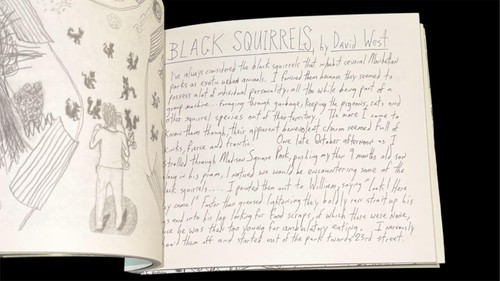 BLACK SQUIRRELS, by David West
I've always considered the black squirrels that inhabit several Manhattan
parks as exotic urban animals. I found them human; they seemed to
possess a lot of individual personality; all the while being part of a
group machine... foraging through garbage, keeping the pigeons, rats and
other squirrel species out of their territory. The more I came to
know them though, their apparent benevolent charm seemed full of
kinks, fierce and frantic. One late October afternoon as I
strolled through Madison Square Park, pushing my then 9 months old son
along in his pram, I noticed we would be encountering some of the
black squirrels..... I pointed them out to William, saying "Look! Here
they come!" Faster than greased lightening they boldly ran straight up his
and into his lap looking for food scraps, of which there were none,
since he was that too young for ambulatory eating. I nervously
them off and started out of the park towards 23rd street.